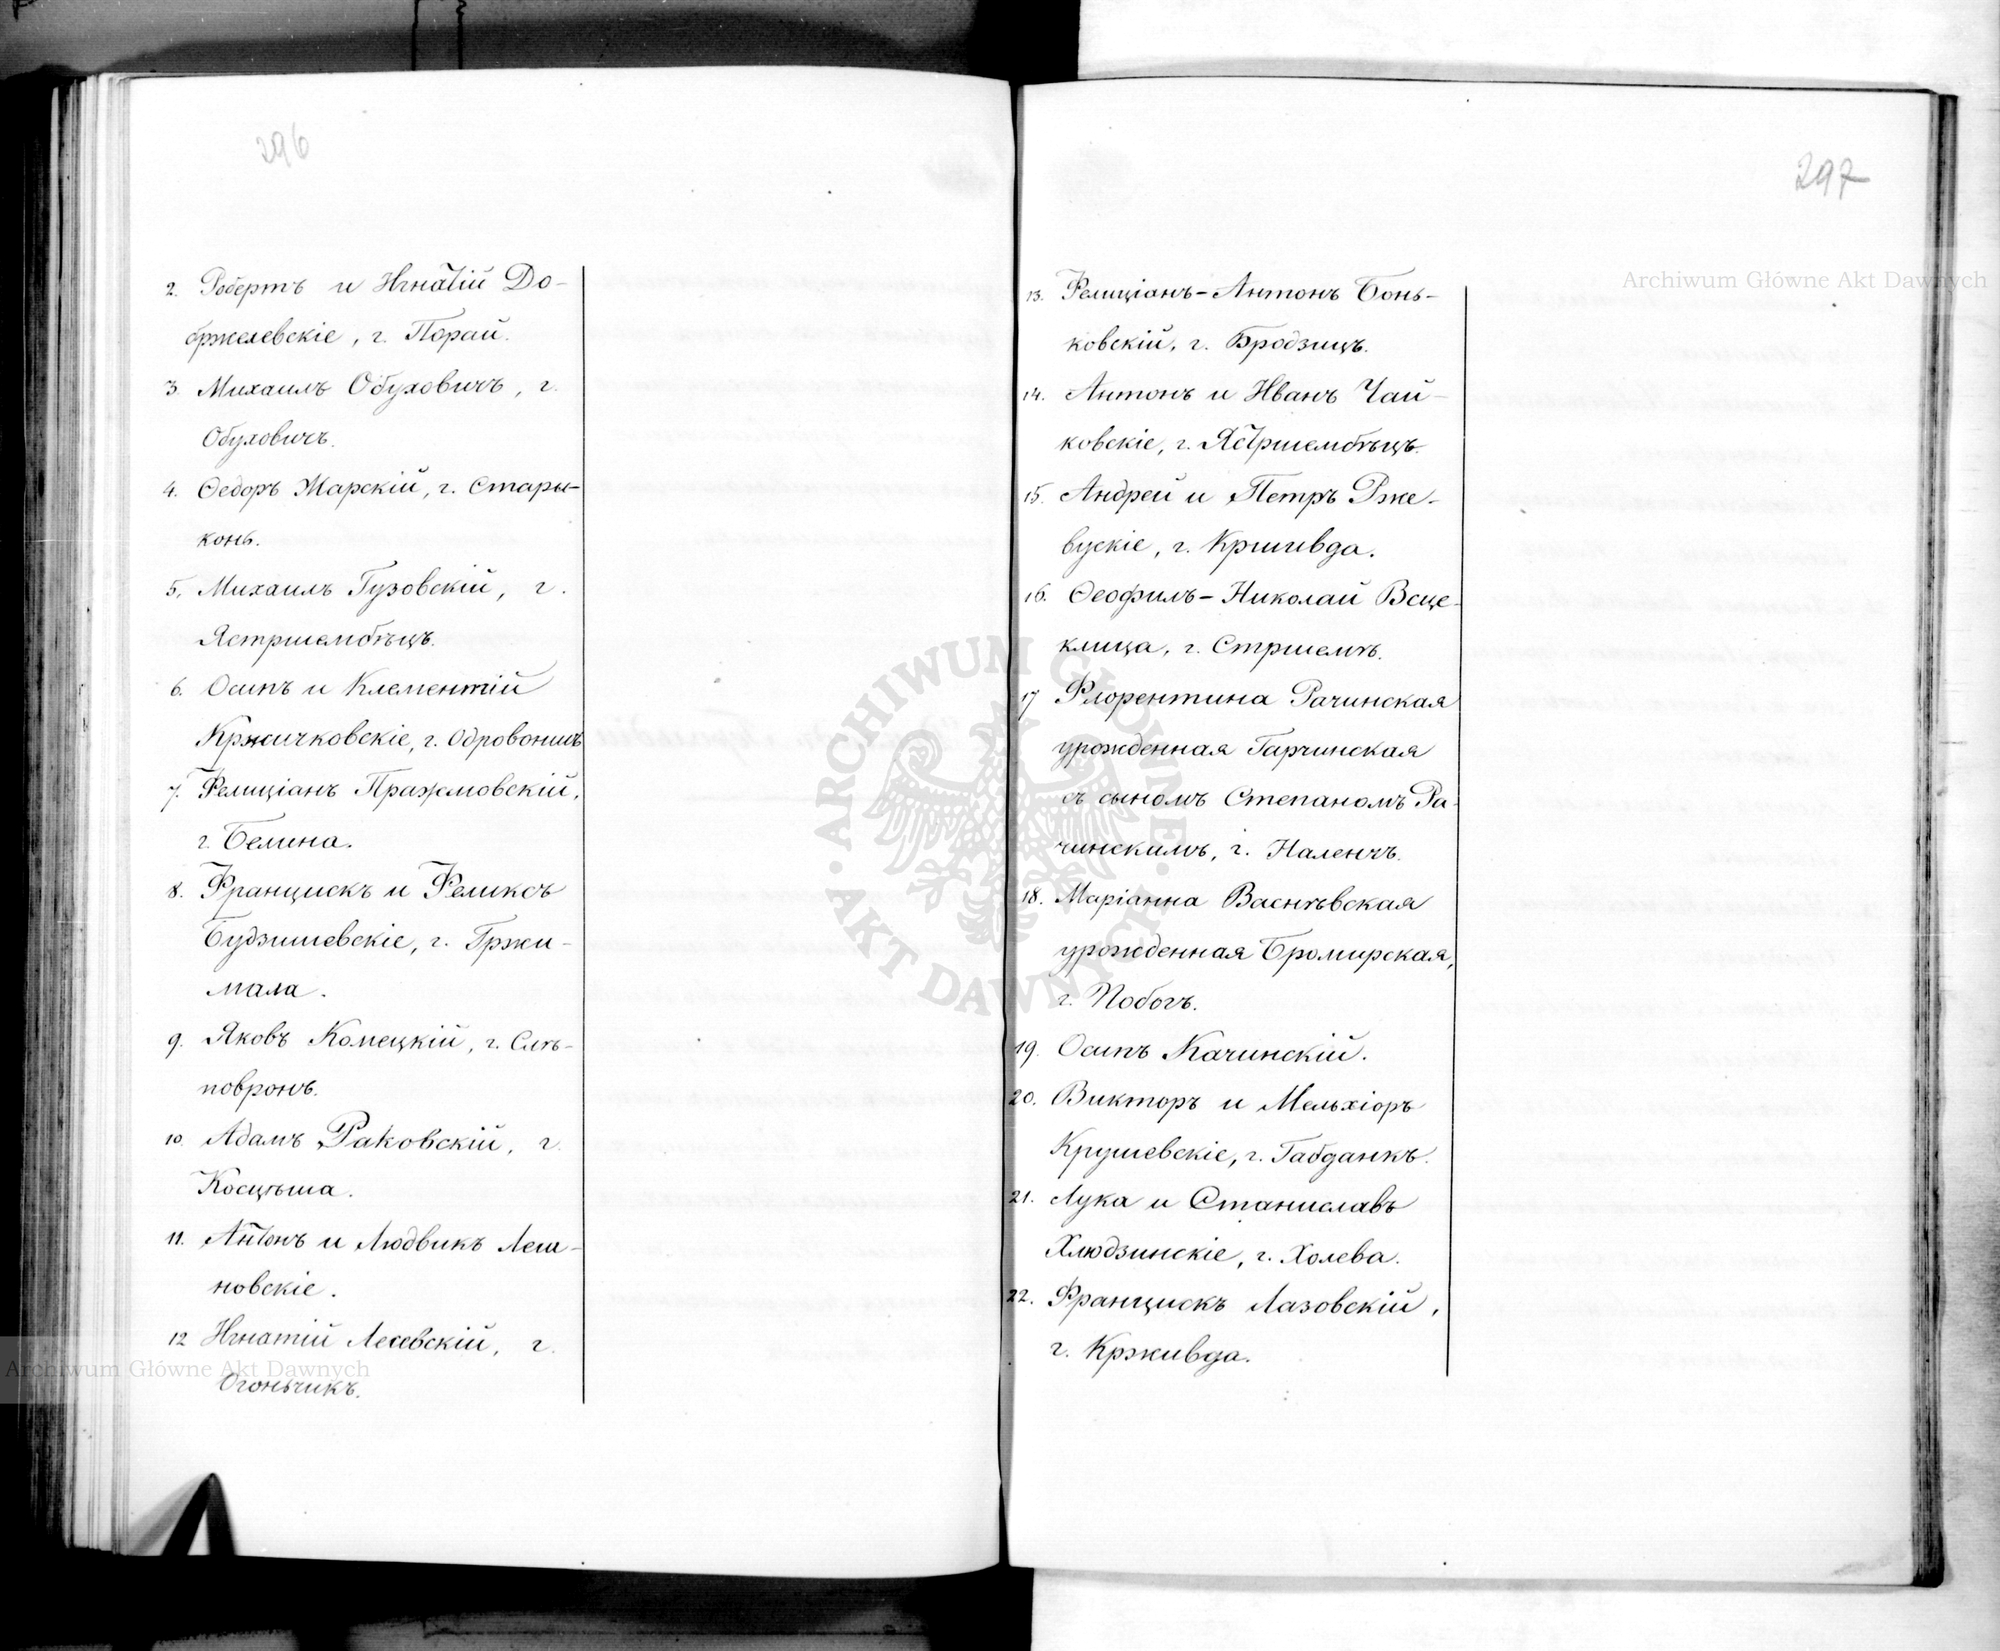 296
2. Робертъ и Игнатій До-
бржелевскіе, г. Порай.
3. Михаилъ Обуховичъ, г.
Обуховичъ.
4. Ѳедоръ Жарскій, г. Стары-
конь.
5. Михаилъ Гузовскій, г.
Ястршембѣцъ.
6. Осипъ и Клементій
Кржичковскіе, г. Одровонжъ
7. Фелиціанъ Пражмовскій,
г. Белина.
8. Францискъ и Феликсъ
Будзишевскіе, г. Гржи-
мала.
9. Яковъ Комецкій, г. Слѣ-
повронъ.
10. Адамъ Раковскій, г.
Косцѣша.
11. Антонъ и Людвикъ Леш-
новскіе.
12 Игнатій Лесевскій, г.
Огончикъ.
297
13. Фелиціанъ-Антонъ Бонь-
ковскій, г. Бродзицъ.
14. Антонъ и Иванъ Чай-
ковскіе, г. Ястршембѣцъ.
15. Андрей и Петръ Рже-
вускіе, г. Кршивда.
16. Ѳеофилъ-Николай Всце-
клица, г. Стршемѣ.
17 Флорентина Рачинская
урожденная Гарчинская
съ сыномъ Степаномъ Ра-
чинскимъ, г. Наленчъ.
18. Маріанна Васнѣвская
урожденная Бромирская,
г. Побогъ.
19. Осипъ Качинскій.
20. Викторъ и Мельхіоръ
Крушевскіе, г. Габданкъ.
21. Лука и Станиславъ
Хлюдзинскіе, г. Холева.
22. Францискъ Лазовскій,
г. Крживда.
Archiwum Główne Akt Dawnych
ARCHIWUM GŁÓWNE AKT DAWNYCH
Archiwum Główne Akt Dawnych